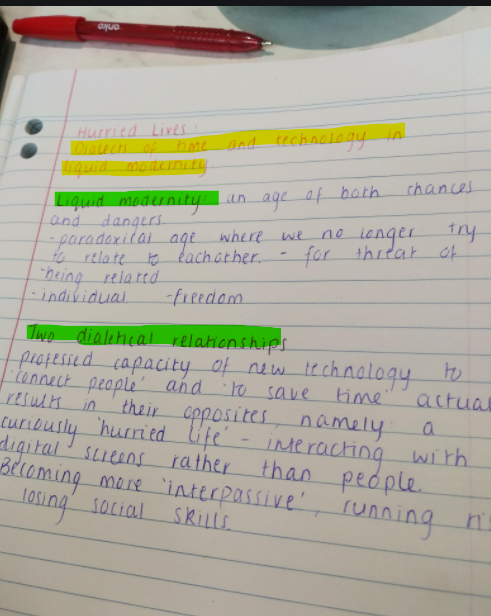 onko
Hurried Lives:
Dialects of time and technology in
liquid modernity.
Liquid modernity: an age of both chances
and dangers
- paradoxical age where we no longer try
to relate to eachother. - for threat of
'being related
- individual - freedom
Two dialetical relationships
professed capacity of new technology to
'connect people' and 'to save time' actual
results in their opposites, namely a
curiously 'hurried life' - interacting with
digital screens rather than people.
Becoming more 'interpassive', running ri
losing social skills.